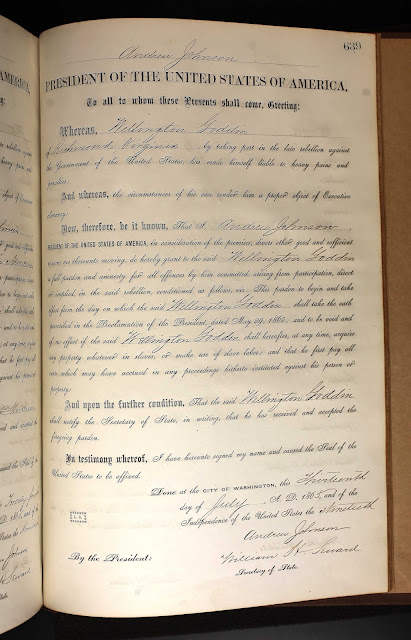 639
Andrew Johnson
PRESIDENT OF THE UNITED STATES OF AMERICA,
To all to whom these Presents shall come, Greeting:
Whereas, Wellington Goddin
of Richmond Virginia, by taking part in the late rebellion against
the Government of the United States, has made himself liable to heavy pains and
penalties;
And whereas, the circumstances of his case render him a proper object of Executive
clemency;
Now, therefore, be it known, That I, Andrew Johnson,
PRESIDENT OF THE UNITED STATES OF AMERICA, in consideration of the premises, divers other good and sufficient
reasons me thereunto moving, do hereby grant to the said Wellington Goddin
a full pardon and amnesty for all offences by him committed, arising from participation, direct
or implied, in the said rebellion, conditioned as follows, viz: This pardon to begin and take
effect from the day on which the said Wellington Goddin shall take the oath
prescribed in the Proclamation of the President, dated May 29, 1865, and to be void and
of no effect if the said Wellington Goddin shall hereafter, at any time, acquire
any property whatever in slaves, or make use of slave labor; and that he first pay all
costs which may have accrued in any proceedings hitherto instituted against his person or
property.
And upon the further condition, That the said Wellington Goddin
shall notify the Secretary of State, in writing, that he has received and accepted the
foregoing pardon.
In testimony whereof, I have hereunto signed my name and caused the Seal of the
United States to be affixed.
Done at the CITY OF WASHINGTON, this Thirteenth
day of July, A. D. 1865, and of the
Independence of the United States the Ninetieth
L.S.
Andrew Johnson
By the President:
William H. Seward
Secretary of State.